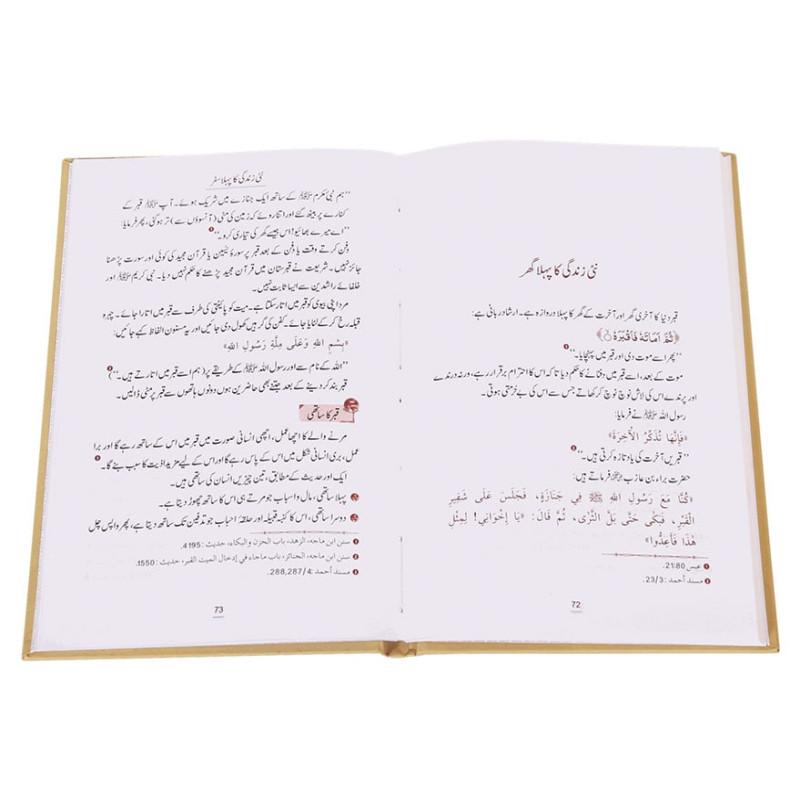 نئی زندگی کا پہلا گھر
قبر دنیا کا آخری گھر اور آخرت کے گھر کا پہلا دروازہ ہے۔ ارشاد ربانی ہے:
﴿ثُمَّ أَمَاتَهُ فَأَقْبَرَهُ﴾
”پھر اسے موت دی اور قبر میں پہنچایا۔“
موت کے بعد، اسے قبر میں دفنانے کا حکم دیا تاکہ اس کا احترام برقرار رہے، ورنہ درندے
اور پرندے اس کی لاش نوچ نوچ کر کھاتے جس سے اس کی بے حرمتی ہوتی۔
رسول اللہ ﷺ نے فرمایا:
«فَإِنَّهَا تُذَكِّرُ الْآخِرَةَ»
”قبریں آخرت کی یاد تازہ کرتی ہیں۔“
حضرت براء بن عازب رضی اللہ عنہ فرماتے ہیں:
«كُنَّا مَعَ رَسُولِ اللهِ ﷺ فِي جَنَازَةٍ، فَجَلَسَ عَلَى شَفِيرِ
الْقَبْرِ، فَبَكَى حَتَّى بَلَّ الثَّرَى، ثُمَّ قَالَ: «يَا إِخْوَانِي! لِمِثْلِ
هٰذَا فَأَعِدُّوا»
1 عبس 21:80.
2 مسند أحمد: 23/3.
72
نئی زندگی کا پہلا سفر
”ہم نبی مکرم ﷺ کے ساتھ ایک جنازے میں شریک ہوئے۔ آپ ﷺ قبر کے
کنارے پر بیٹھ گئے اور اتنا روئے کہ زمین کی مٹی (آنسوؤں سے) تر ہو گئی، پھر فرمایا:
”اے میرے بھائیو! اس جیسے گھر کی تیاری کرو۔“ 1
دفن کرتے وقت یا دفن کے بعد قبر پر سورۂ یٰسین یا قرآن مجید کی کوئی اور سورت پڑھنا
جائز نہیں۔ شریعت نے قبرستان میں قرآن مجید پڑھنے کا حکم نہیں دیا۔ نبی کریم ﷺ اور
خلفائے راشدین سے ایسا ثابت نہیں۔
مرد اپنی بیوی کو قبر میں اتار سکتا ہے۔ میت کو پائنتی کی طرف سے قبر میں اتارا جائے۔ چہرہ
قبلہ رخ کر کے لٹایا جائے۔ کفن کی گرہیں کھول دی جائیں اور یہ مسنون الفاظ کہے جائیں:
«بِسْمِ اللهِ وَعَلَى مِلَّةِ رَسُولِ اللهِ»
”اللہ کے نام سے اور رسول اللہ ﷺ کے طریقے پر (ہم اسے قبر میں اتارتے ہیں۔“) 2
قبر بند کر دینے کے بعد جتنے بھی حاضرین ہوں دونوں ہاتھوں سے قبر پر مٹی ڈالیں۔
قبر کا ساتھی
مرنے والے کا اچھا عمل، اچھی انسانی صورت میں قبر میں اس کے ساتھ رہے گا اور برا
عمل، بری انسانی شکل میں اس کے پاس رہے گا اور اس کے لیے مزید اذیت کا سبب بنے گا۔ 3
ایک اور حدیث کے مطابق، تین چیزیں انسان کی ساتھی ہیں۔
پہلا ساتھی، مال و اسباب جو مرتے ہی اس کا ساتھ چھوڑ دیتا ہے۔
دوسرا ساتھی، اس کا کنبہ قبیلہ اور حلقۂ احباب جو تدفین تک ساتھ دیتا ہے، پھر واپس چل
1 سنن ابن ماجه، الزهد، باب الحزن والبكاء، حديث: 4195.
2 سنن ابن ماجه، الجنائز، باب ماجاء في إدخال الميت القبر، حديث: 1550.
3 مسند أحمد: 288,287/4.
73